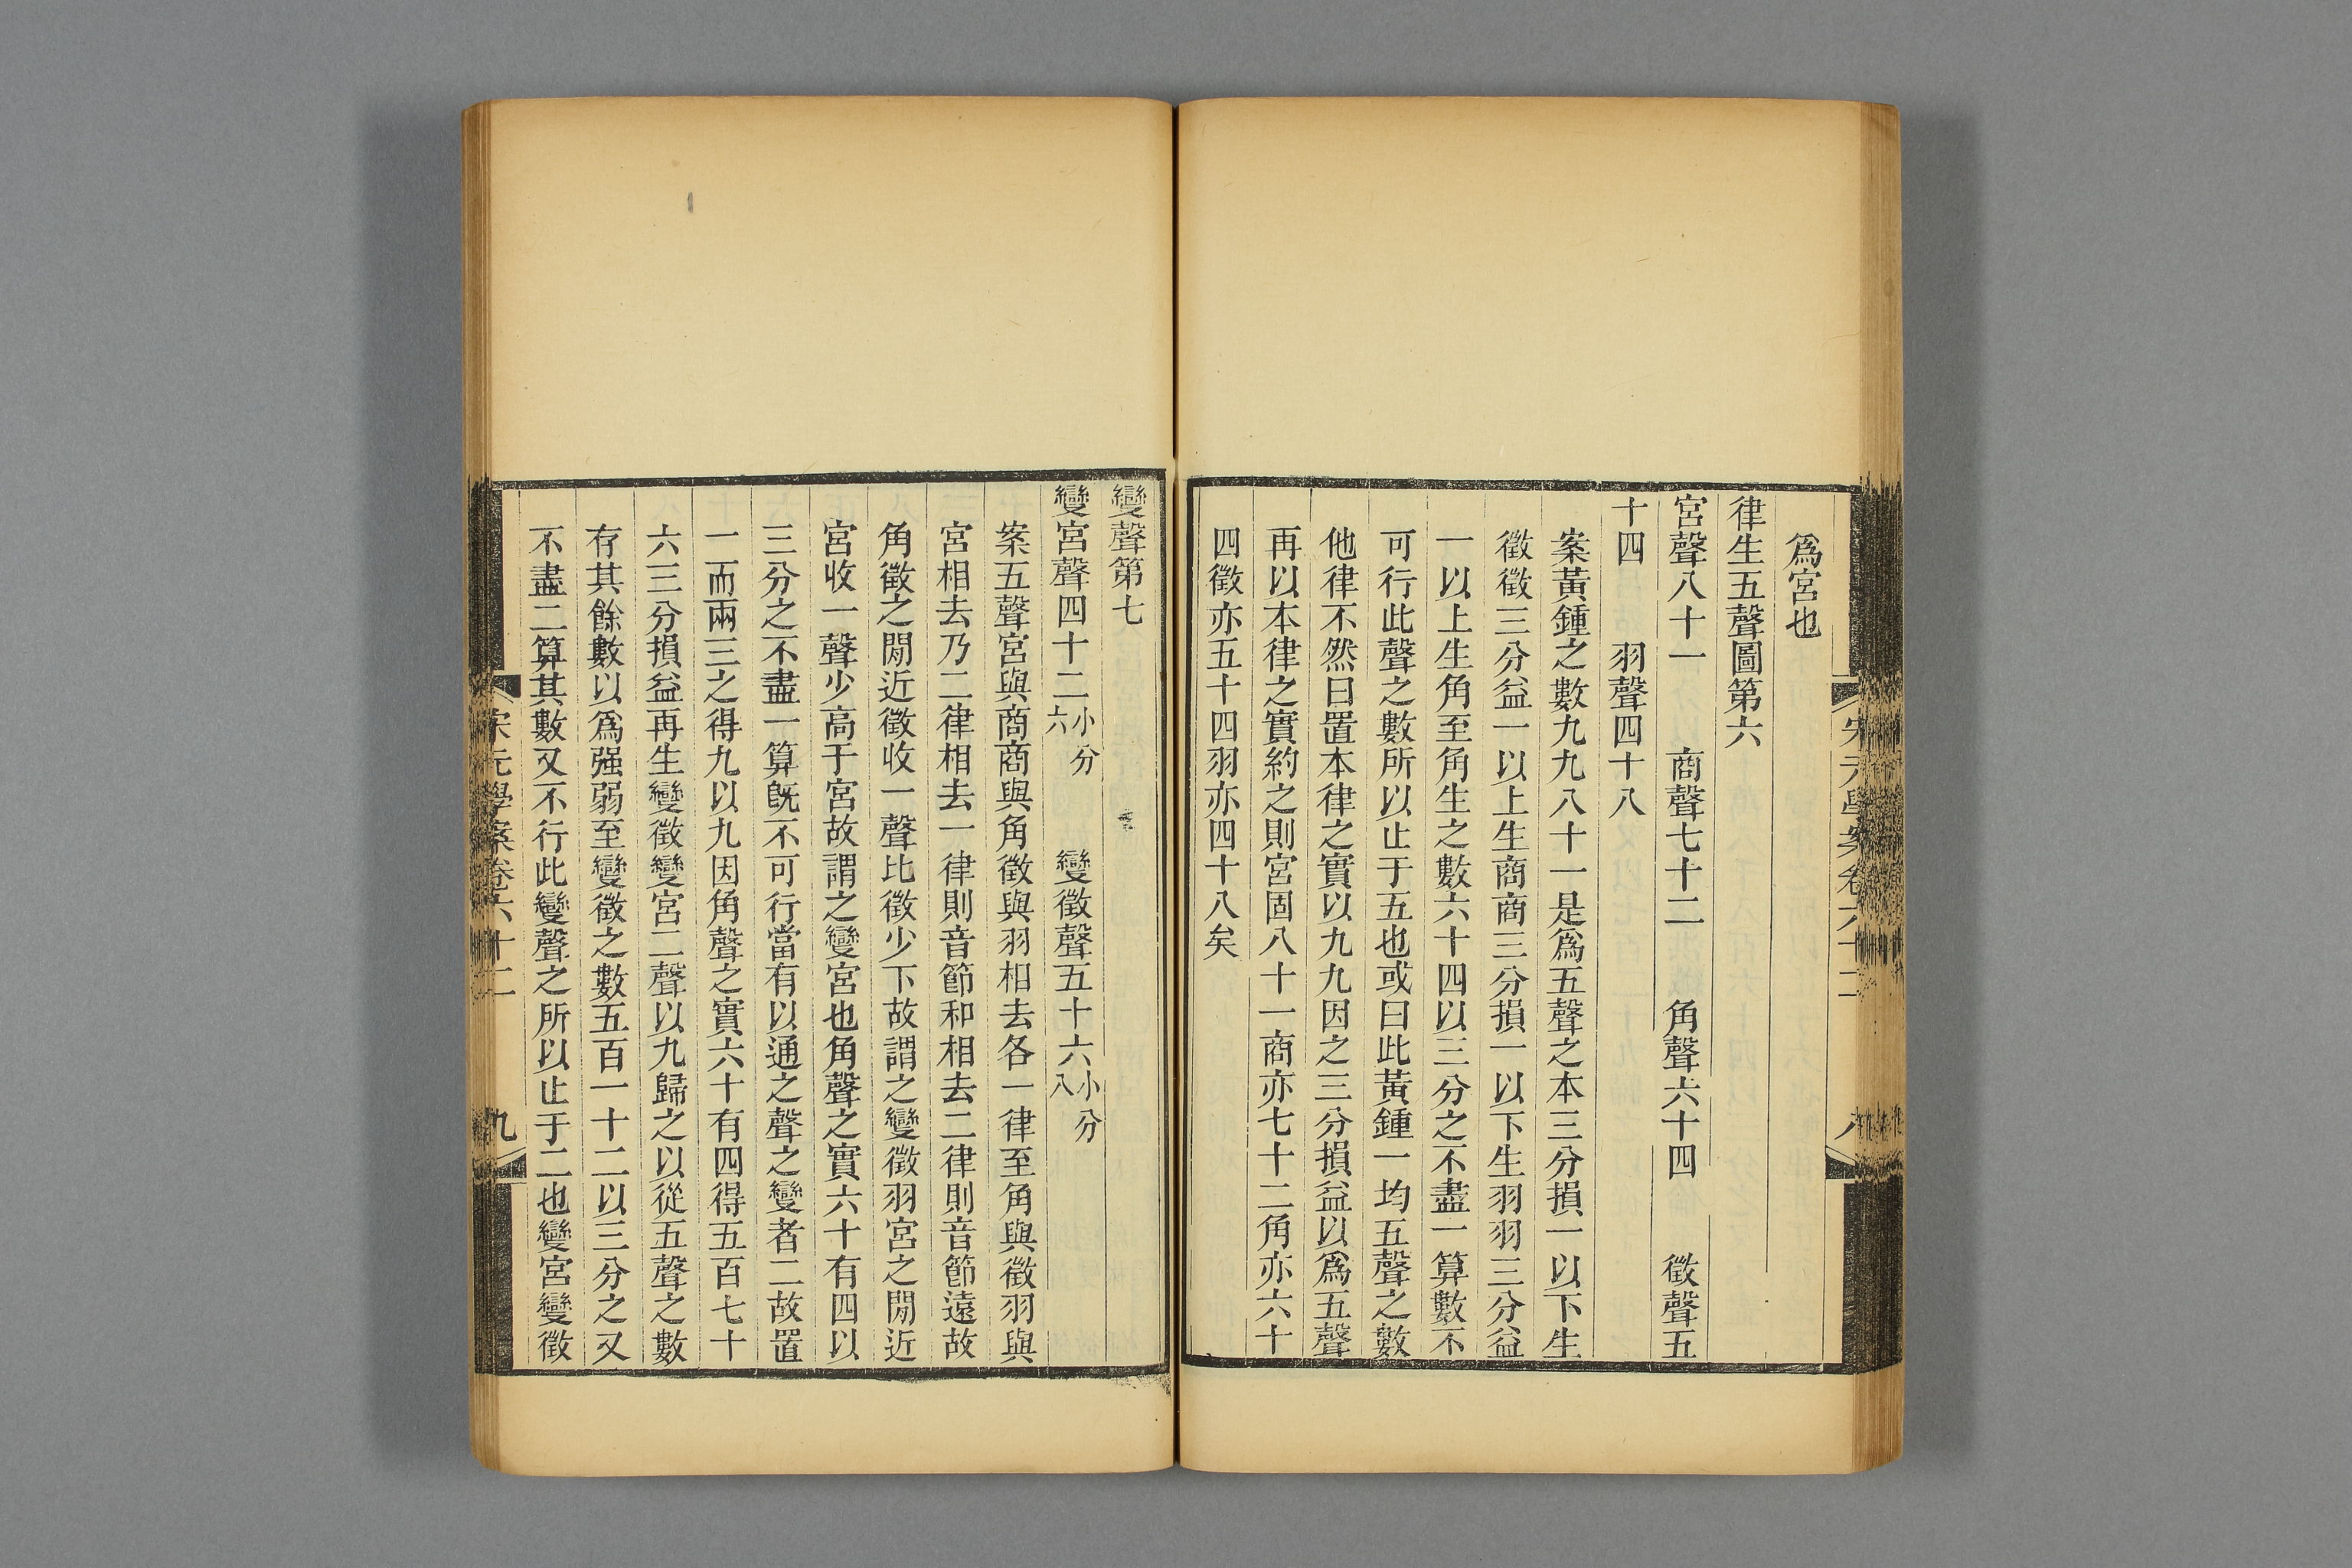 爲宮也
律生五聲圖第六
宮聲八十一 商聲七十二 角聲六十四 徵聲五
十四 羽聲四十八
案黃鍾之數九九八十一是爲五聲之本三分損一以下生
徵徵三分益一以上生商商三分損一以下生羽羽三分益
一以上生角至角生之數六十四以三分之不盡一算數不
可行此聲之數所以止于五也或曰此黃鍾一均五聲之數
他律不然曰置本律之實以九九因之三分損益以爲五聲
再以本律之實約之則宮固八十一商亦七十二角亦六十
四徵亦五十四羽亦四十八矣
宋元學案卷六十二
八
變聲第七
變宮聲四十二小分六 變徵聲五十六小分八
案五聲宮與商商與角徵與羽相去各一律至角與徵羽與
宮相去乃二律相去一律則音節和相去二律則音節遠故
角徵之閒近徵收一聲比徵少下故謂之變徵羽宮之閒近
宮收一聲少高于宮故謂之變宮也角聲之實六十有四以
三分之不盡一算旣不可行當有以通之聲之變者二故置
一而兩三之得九以九因角聲之實六十有四得五百七十
六三分損益再生變徵變宮二聲以九歸之以從五聲之數
存其餘數以爲强弱至變徵之數五百一十二以三分之又
不盡二算其數又不行此變聲之所以止于二也變宮變徵
宋元學案卷六十二
九